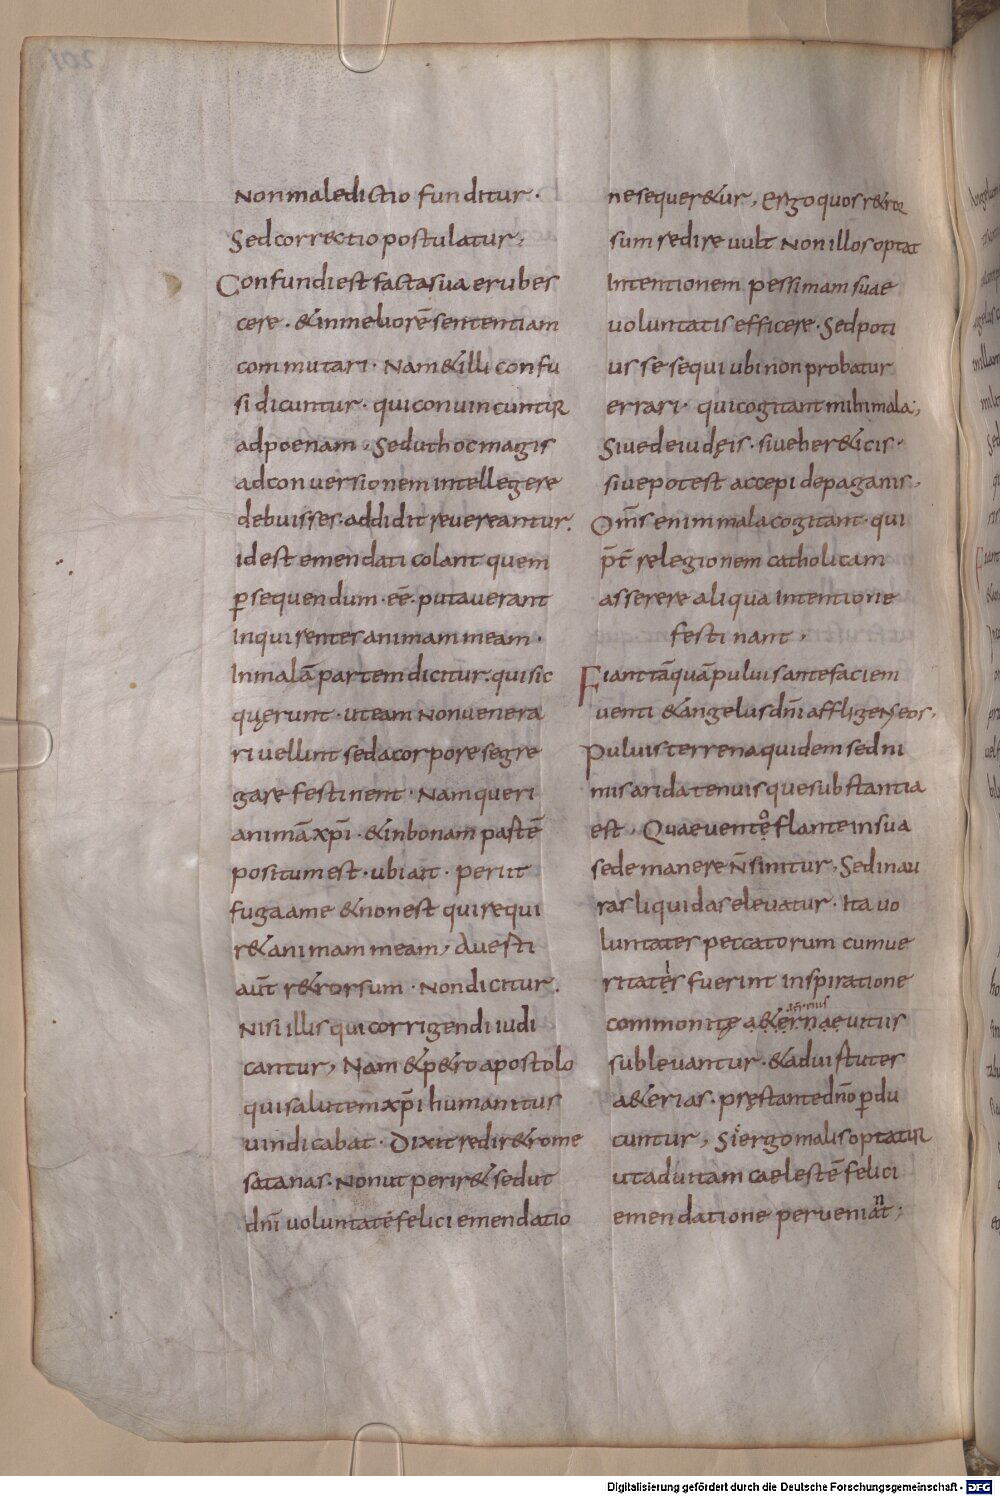 Non maledictio funditur.
Sed correctio postulatur,
Confundi est facta sua erubes
cere. & in meliorē sententiam
commutari. Nam & illi confu
si dicuntur. qui conuincuntur
ad poenam. Sed ut hoc magis
ad conuersionem intellegere
debuisses. addidit reuereantur.
id est emendati colant quem
ꝑsequendum. eē. putauerant
Inquirentes animam meam.
In malā partem dicitur. qui sic
quęrunt. ut eam Non uenera
ri uellint sed a corpore segre
gare festinent. Nam queri
animā xp̄i. & in bonam partē
positum est. ubi ait. periit
fuga a me & non est qui requi
r& animam meam, Auerti
aūt r&rorsum. Non dicitur.
Nisi illis qui corrigendi iudi
cantur, Nam & p&ro apostolo
qui salutem xp̄i humanitus
uindicabat. Dixit redi r&ro me
satanas. Non ut perir& sed ut
dn̄i uoluntatē felici emendatio
ne sequer&ur, Ergo quos r&ror
sum redire uult Non illos optat
Intentionem pessimam suae
uoluntatis efficere. Sed poti
us se sequi ubi non probatur
errari. qui cogitant mihi mala;,
Siue de iudęis. siue her&icis.
siue potest accepi de paganis,
Om̄s enim mala cogitant. qui
p̄t̄ relegionem catholicam
asserere aliqua Intentione
festinant,
Fiant tāquā puluis ante faciem
uenti & angelus dn̄i affligens eos,
Puluis terrena quidem sed ni
mis arida tenuisque substantia
est, Quae uento flante in sua
sede manere n̄ sinitur, Sed in au
ras liquidas eleuatur. Ita uo
luntates peccatorum cum ue
ritatis fuerint inspiratione
commonitę a terrenis &ernae uitiis
subleuantur. & ad uirtutes
a&erias. pręstante dn̄o ꝑdu
cuntur, Si ergo malis optatur
ut ad uitam caelestē felici
emendatione perueniant;